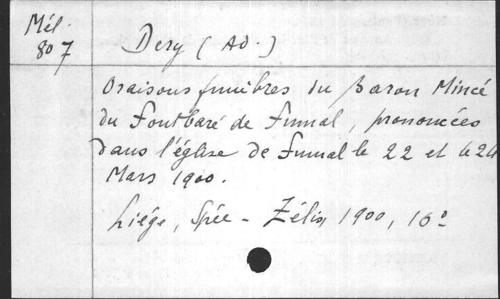 Mél.
807
Dery (Ad.)
Oraisons funèbres du Baron Mincé
du Fontbaré de Fumal, prononcées
dans l'église de Fumal le 22 et le 24
Mars 1900.
Liége, Spée-Zélis, 1900, 16º